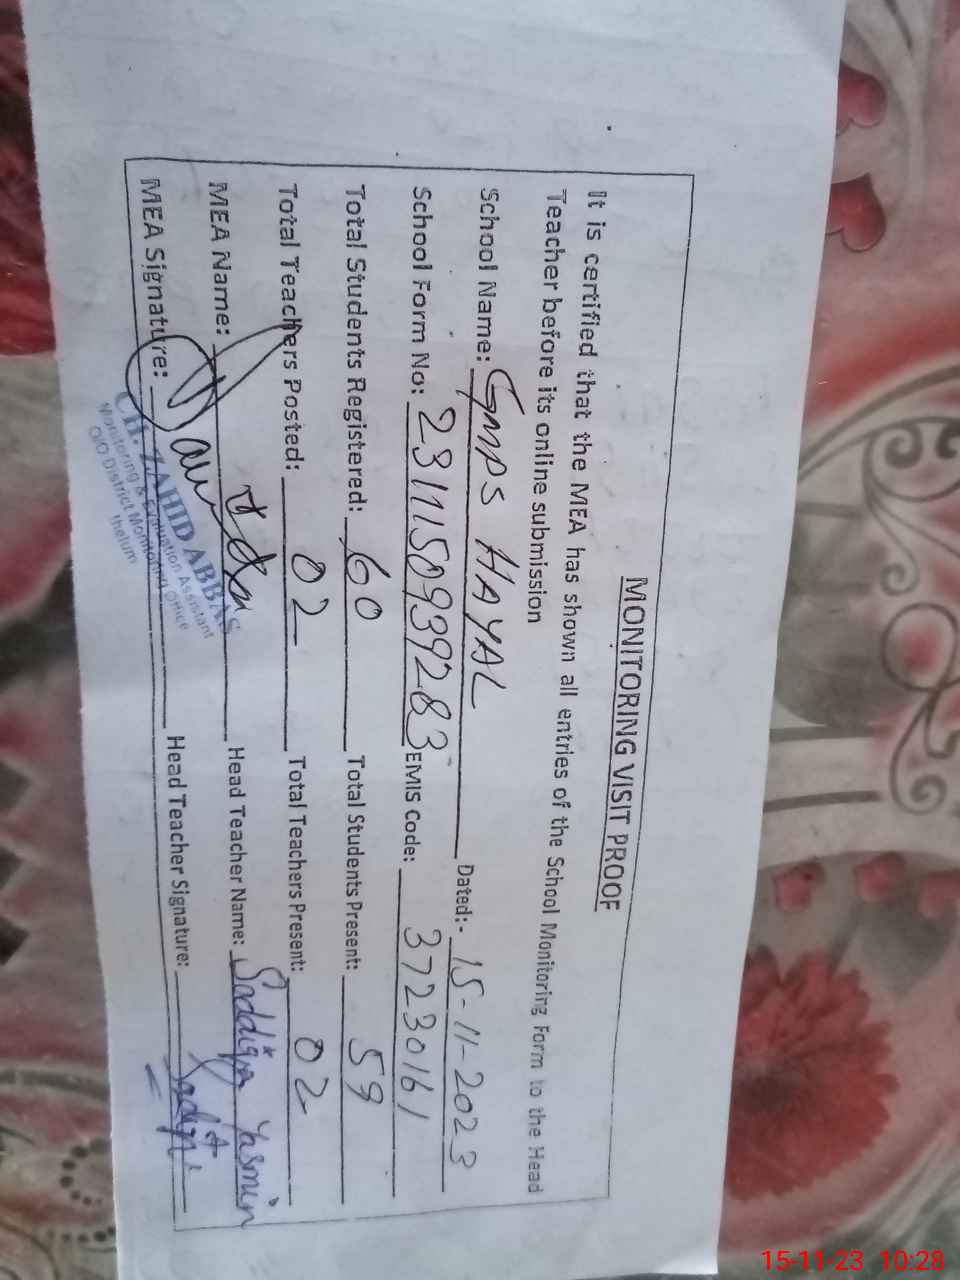 MONITORING VISIT PROOF
It is certified that the MEA has shown all entries of the School Monitoring Form to the Head
Teacher before its online submission
School Name: GMPS HAYAL Dated:- 15-11-2023
School Form No: 2311150939283 EMIS Code: 37230161
Total Students Registered: 60 Total Students Present: 59
Total Teachers Posted: 02 Total Teachers Present: 02
MEA Name: Head Teacher Name: Saddiqa Yasmin
MEA Signature: Head Teacher Signature:
CH. ZAHID ABBAS
Monitoring & Evaluation Assistant
O/O District Monitoring Office
Jhelum
15-11-23 10:28